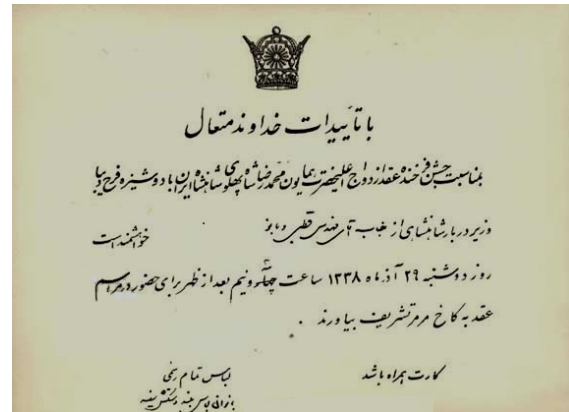 با تأییدات خداوند متعال
بمناسبت جشن فرخنده عقد ازدواج اعلیحضرت همایون محمدرضا شاه پهلوی شاهنشاه ایران با دوشیزه فرح دیبا
وزیر دربار شاهنشاهی از جناب آقای مهندس قطبی و بانو خواهشمند است
روز دوشنبه ۲۹ آذرماه ۱۳۳۸ ساعت چهار و نیم بعد از ظهر برای حضور در مراسم
عقد به کاخ مرمر تشریف بیاورند .
کارت همراه باشد
لباس تمام رسمی
بانوان لباس بلند دستکش